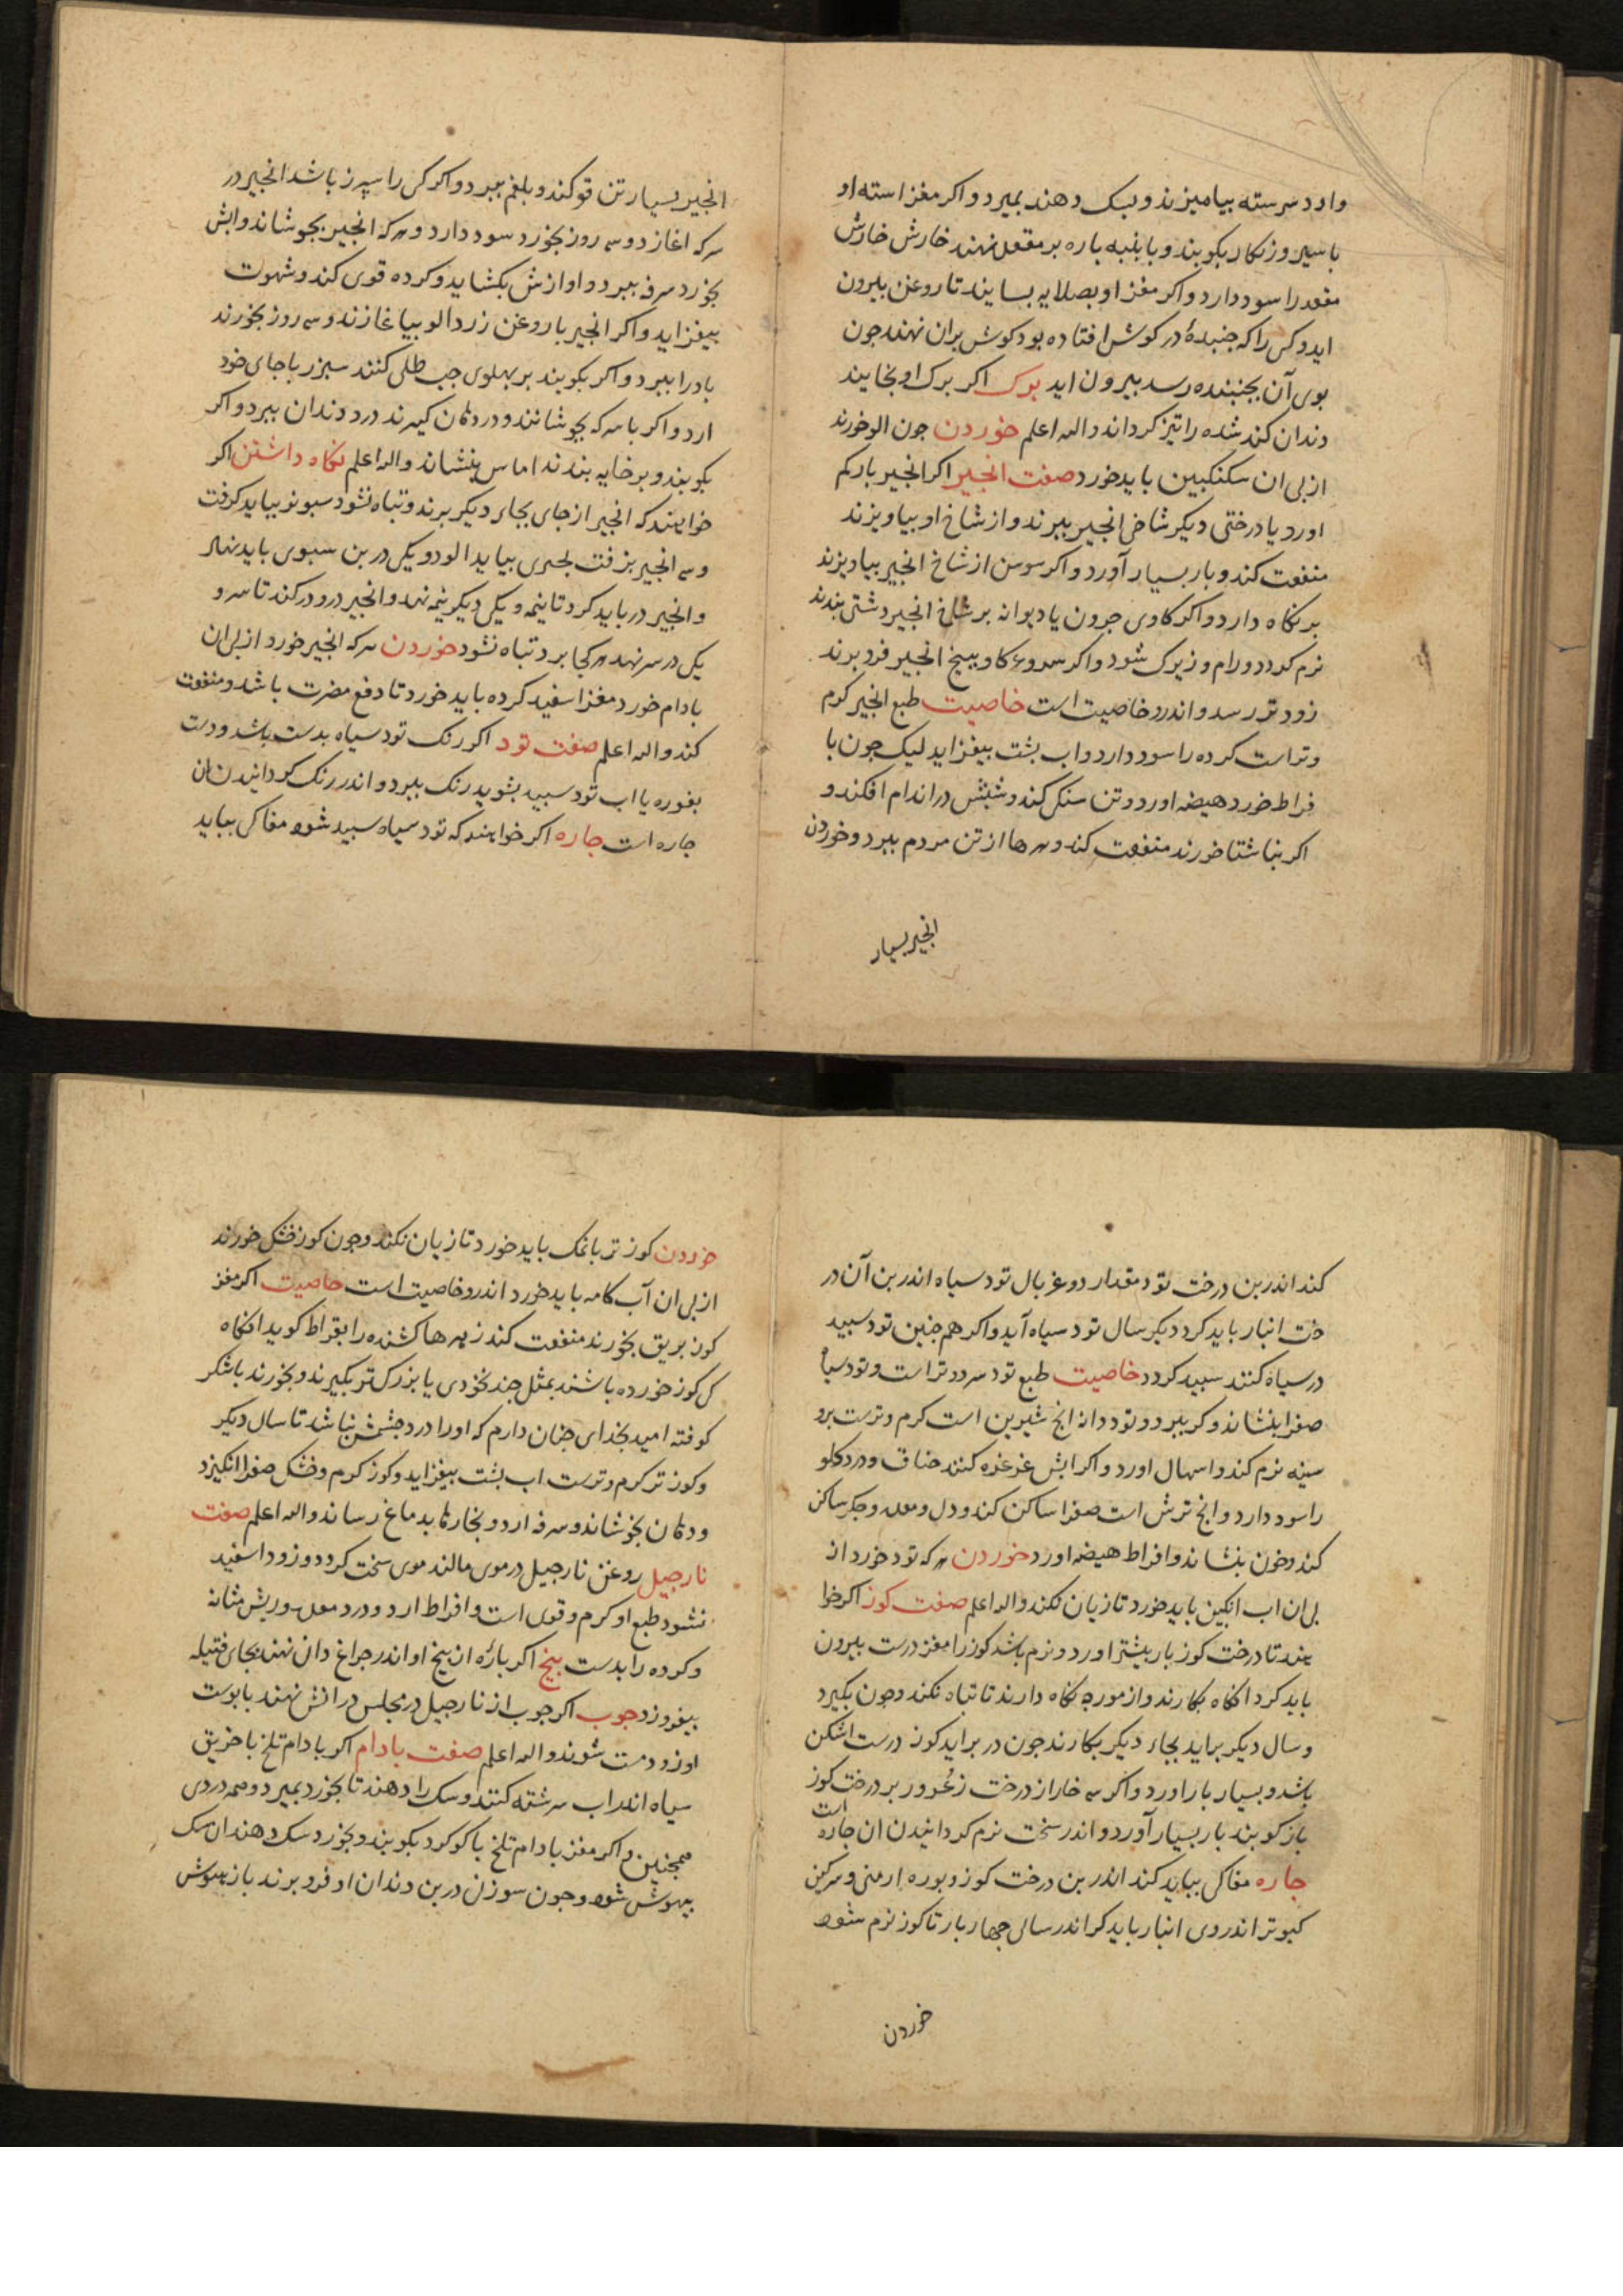 وارد سرسته بیامیزند و بسک دهند بمیرد و اکر مغز استه او
با سیر و زنکار بکوبند و با پنبه باره بر مقعد نهند خارش خارش
مقعد را سود دارد و اکر مغز او بصلایه بسایند تا روغن بیرون
اید و کسی را که جنبدۀ در کوش افتاده بود کوش بران نهند جون
بوی آن بجنبنده رسد بیرون اید برک اکر برک او بخایند
دندان کند شده را تیز کرداند والله اعلم خوردن جون الو خورند
از بی ان سکنکبین باید خورد صفت انجیر اکر انجیر بار کم
اورد یا درختی دیکر شاخی انجیر ببرند و از شاخ او بیاویزند
منفعت کند و بار بسیار آورد و اکر سوسن از شاخ انجیر بیاویزند
بر نکاه دارد و اکر کاوی حرون یا دیوانه بر شاخ انجیر دشتی بندند
نرم کردد و رام و زیرک شود و اکر سروء کاو ببیخ انجیر فرو برند
زودتر رسد و اندرو خاصیت است خاصیت طبع انجیر کرم
و تر است کرده را سود دارد و اب بشت بیفزاید لیک جون با
فراط خورد هیضه اورد و تن سنکی کند و شبش در اندام افکند و
اکر بناشتا خورند منفعت کند و زهرها از تن مردم ببرد و خوردن
انجیر بسیار
انجیر بسیار تن قو کند و بلغم ببرد و اکر کس را سپرز باشد انجیر در
سرکه اغازد و سه روز بخورد سود دارد و هر که انجیر بجوشاند و ابش
بخورد سرفه ببرد و اوازش بکشاید و کرده قوی کند و شهوت
بیفزاید و اکر انجیر با روغن زردالو بیاغازند و سه روز بخورند
باد را ببرد و اکر بکوبند بر بهلوی جب طلی کنند سبرز با جای خود
ارد و اکر با سرکه بجوشانند و در دهان کیرند درد دندان ببرد و اکر
بکوبند و بر خایه بندند اماس بنشاند والله اعلم نکاه داشتن اکر
خواهند که انجیر از جای بجاء دیکر برند و تباه نشود سبو نو بباید کرفت
و سه انجیر بزفت بحری بباید الود و یکی در بن سبوی باید نهاد
و انجیر در باید کرد تا نیمه و یکی دیکر نیمه نهد و انجیر درو در کند تا سر و
یکی در سر نهد هر کجا برد تباه نشود خوردن هر که انجیر خورد از بی ان
بادام خورد مغز اسفید کرده باید خورد تا دفع مضرت باشد و منفعت
کند والله اعلم صفت تود اکر رنک تود سیاه بدست باشد و دست
بغوره یا اب تود سبید بشوید رنک ببرد و اندر رنک کردانیدن ان
جاره است جاره اکر خواهند که تود سیاه سبید شود مغاکی بباید
کند اندر بن درخت تود مقدار دو غربال تود سیاه اندر بن آن در
خت انبار باید کرد دیکر سال تود سیاه آید و اکر هم جنین تود سبید
در سیاه کنند سبید کردد خاصیت طبع تود سرد و تر است و تود سیاه
صفرا بنشاند و کر ببرد و تود دانه انج شیرین است کرم و ترست برو
سینه نرم کند و اسهال اورد و اکر ابش غرغره کنند خناق و درد کلو
را سود دارد و انج ترش است صفرا ساکن کند و دل و معده و جکر ساکن
کند و خون بنشاند و افراط هیضه اورد خوردن هر که تود خورد از
بی ان اب انکبین باید خورد تا زیان نکند والله اعلم صفت کوز اکر خوا
هند تا درخت کوز بار بیشتر اورد و نرم باشد کوز را مغز درست بیرون
باید کرد انکاه بکارند و از مورجه نکاه دارند تا تباه نکند و جون بکیرد
و سال دیکر براید بجاء دیکر بکارند جون در براید کوز درست اشکن
باشد و بسیار بار اورد و اکر سه خار از درخت زعرور بر درخت کوز
باز کوبند بار بسیار آورد و اندر سخت نرم کردانیدن ان جاره است
جاره مغاکی بباید کند اندر بن درخت کوز و بوره ارمنی و سرکین
کبوتر اندروی انبار باید کر اندر سالی جهار بار تا کوز نرم شود
خوردن
خوردن کوز تر با نمک باید خورد تا زیان نکند و جون کوز خشک خورند
از بی ان آب کامه باید خورد اندرو خاصیت است خاصیت اکر مغز
کوز بریق بخورند منفعت کند زهرها کشنده را بقراط کوید انکاه
کی کوز خورده باشند بمثل جند نخودی یا بزرک تر بکیرند و بخورند باشکر
کوفته امید بخدای جنان دارم که او را درد جشمش نباشد تا سال دیکر
و کوز تر کرم و ترست اب بشت بیفزاید و کوز کرم و خشک صفرا انکیزد
و دهان بخوشاند و سرفه ارد و بخارها بدماغ رساند والله اعلم صفت
نارجیل روغن نارجیل در موی مالند موی سخت کردد و زود اسفید
نشود طبع او کرم و قوی است و افراط ارد و درد معده و ریش مثانه
و کرده را بدست بیخ اکر بارۀ از بیخ او اندر جراغ دان نهند بجای فتیله
بیفروزد جوب اکر جوب از نارجیل در مجلس در اتش نهند با بوست
او زود مست شوند والله اعلم صفت بادام اکر بادام تلخ با خربق
سیاه اندر اب سرشته کنند و سک را دهند تا بخورد بمیرد و همه دردی
همجنین و اکر مغز بادام تلخ با کوکرد بکوبند و بخورد سک دهند ان سک
بیهوش شود و جون سوزن در بن دندان او فرو برند باز بهوش